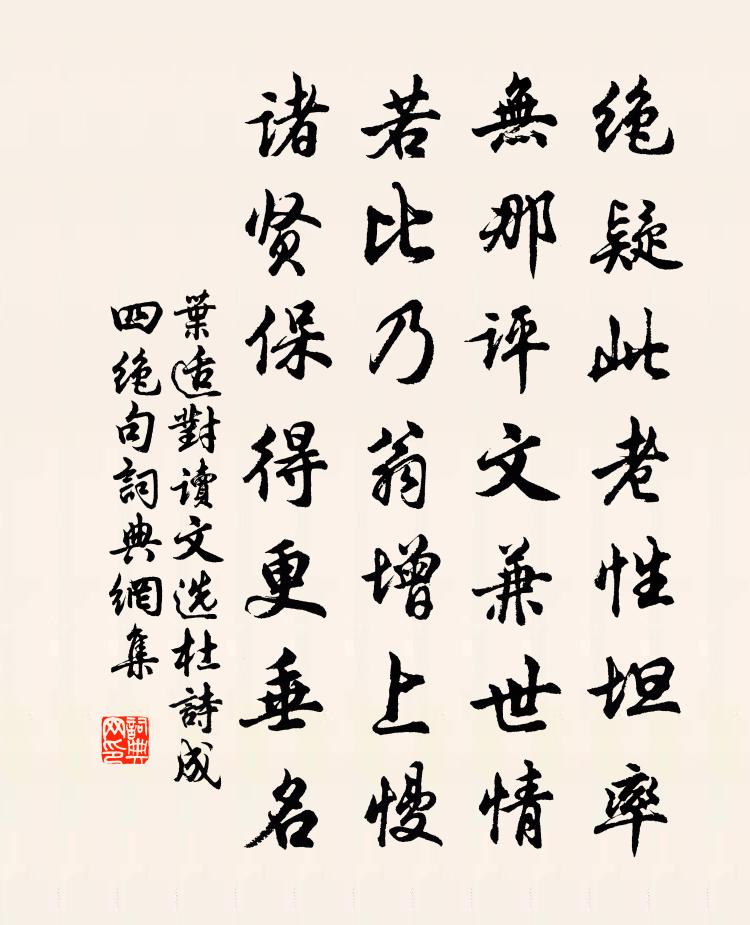 绝疑此老性坦率
無那评文兼世情
若比乃翁增上慢
诸贤保得更垂名
葉适對读文选杜詩成
四绝句詞典網集
詞典网印